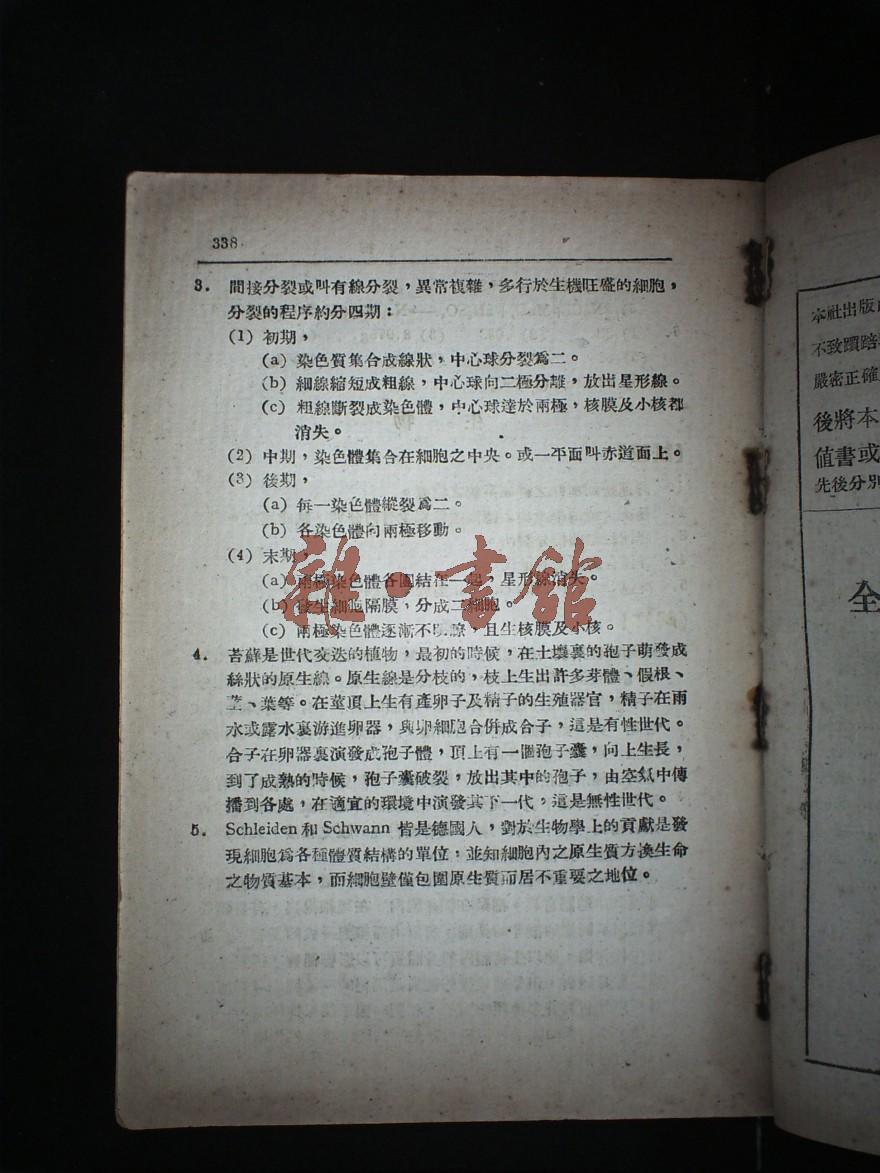 338
3. 間接分裂或叫有線分裂，異常複雜，多行於生機旺盛的細胞，
分裂的程序約分四期：
(1) 初期，
(a) 染色質集合成線狀，中心球分裂爲二。
(b) 細線縮短成粗線，中心球向二極分離，放出星形線。
(c) 粗線斷裂成染色體，中心球達於兩極，核膜及小核都
消失。
(2) 中期，染色體集合在細胞之中央。或一平面叫赤道面上。
(3) 後期，
(a) 每一染色體縱裂爲二。
(b) 各染色體向兩極移動。
(4) 末期，
(a) 兩極染色體各團結在一起，星形線消失。
(b) 發生細胞隔膜，分成二細胞。
(c) 兩極染色體逐漸不明瞭，且生核膜及小核。
4. 苔蘇是世代交迭的植物，最初的時候，在土壤裏的孢子萌發成
絲狀的原生線。原生線是分枝的，枝上生出許多芽體、假根、
莖、葉等。在莖頂上生有產卵子及精子的生殖器官，精子在雨
水或露水裏游進卵器，與卵細胞合併成合子，這是有性世代。
合子在卵器裏演發成孢子體，頂上有一個孢子囊，向上生長，
到了成熟的時候，孢子囊破裂，放出其中的孢子，由空氣中傳
播到各處，在適宜的環境中演發其下一代，這是無性世代。
5. Schleiden 和 Schwann 皆是德國人，對於生物學上的貢獻是發
現細胞爲各種體質結構的單位，並知細胞內之原生質方換生命
之物質基本，而細胞壁僅包圍原生質而居不重要之地位。
雜·書館
本社出版
不致躓踣
嚴密正確
後將本
值書或
先後分別
全